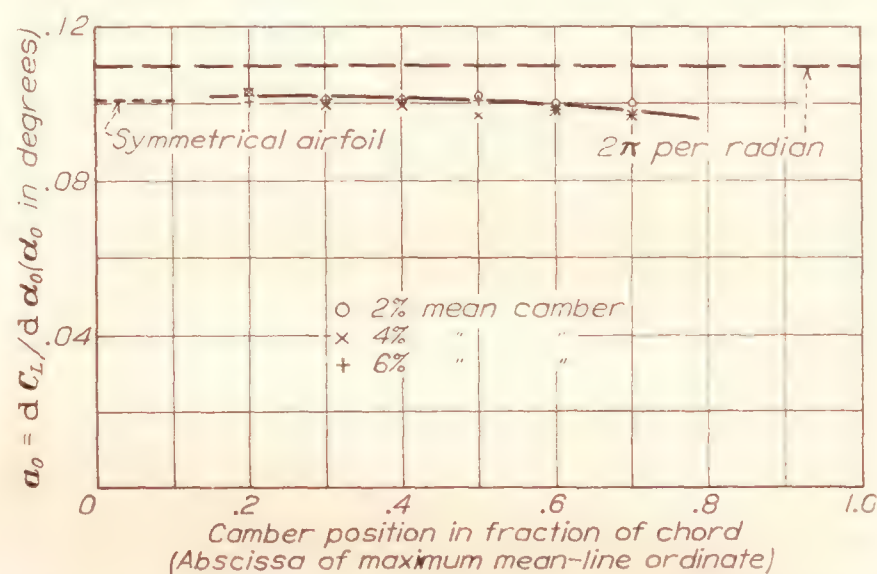 .12
.08
.04
0
a₀ = d C_L/d α₀(α₀ in degrees)
Symmetrical airfoil
2π per radian
o 2% mean camber
× 4% " "
+ 6% " "
0 .2 .4 .6 .8 1.0
Camber position in fraction of chord
(Abscissa of maximum mean-line ordinate)